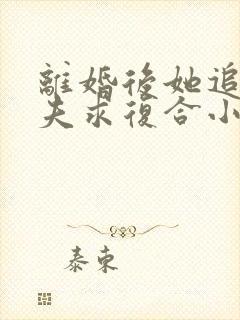 離婚後她追
夫求復合小
泰東